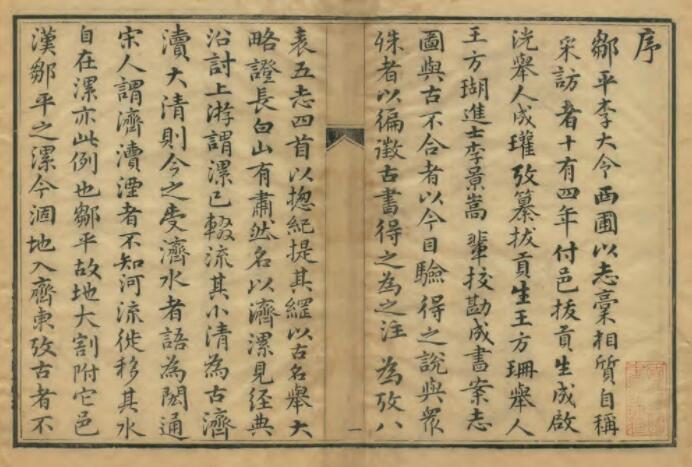 序
鄒平李大令西圃以志稾相質自稱
采訪者十有四年付邑拔貢生成啟
洸舉人成瓘攷纂拔貢生王方珊舉人
王方瑚進士李景嵩輩挍勘成書案志
圖與古不合者以今目驗得之說與眾
殊者以徧徵古書得之為之注 為攷八
表五志四首以揔紀提其綱以古名舉大
略證長白山有肅然名以濟漯見經典
沿討上游謂漯已輟流其小清為古濟
瀆大清則今之受濟水者語為閎通
宋人謂濟瀆湮者不知河流徙移其水
自在漯亦此例也鄒平故地大割附它邑
漢鄒平之漯今涸地入齊東攷古者不
一